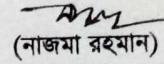 (নাজমা রহমান)